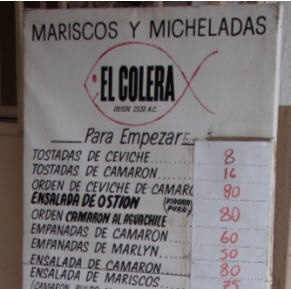 MARISCOS Y MICHELADAS
EL COLERA
DESDE 2532 A.C.
Para Empezar
TOSTADAS DE CEVICHE 8
TOSTADAS DE CAMARON 16
ORDEN DE CEVICHE DE CAMARO 80
ENSALADA DE OSTION (VIAGRA PURA)
ORDEN CAMARON AL AGUACHILE 80
EMPANADAS DE CAMARON 60
EMPANADAS DE MARLYN 50
ENSALADA DE CAMARON 80
ENSALADA DE MARISCOS 75